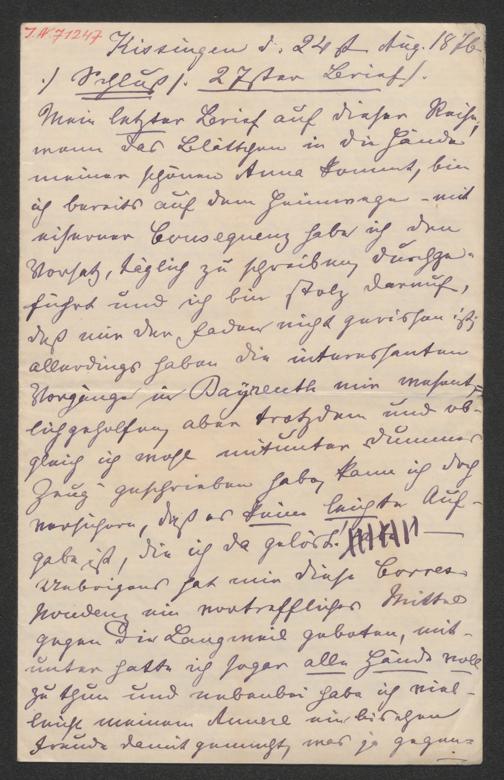 J.N 71247
Kissingen d. 24st Aug. 1876
./ Schluß /. 27ster Brief /.
Mein letzter Brief auf dieser Reise,
wenn das Blättchen in die Hände
meiner schönen Anna kommt, bin
ich bereits auf dem Heimwege – mit
eiserner Consequenz habe ich den
Vorsatz, täglich zu schreiben, durchge-
führt und ich bin stolz darauf,
daß mir der Faden nicht gerissen ist;
allerdings haben die interessanten
Vorgänge in Bayreuth mir wesent=
lich geholfen, aber trotzdem und ob-
gleich ich wohl mitunter dummes
Zeug geschrieben habe, kann ich doch
versichern, daß es keine leichte Auf-
gabe ist, die ich da gelöst!
Uebrigens hat mir diese Corres-
pondenz ein vortreffliches Mittel
gegen die Langweil geboten, mit-
unter hatte ich sogar alle Hände voll
zu thun und nebenbei habe ich viel-
leicht meinem Annerl ein bischen
Freude damit gemacht, was ja gegen=